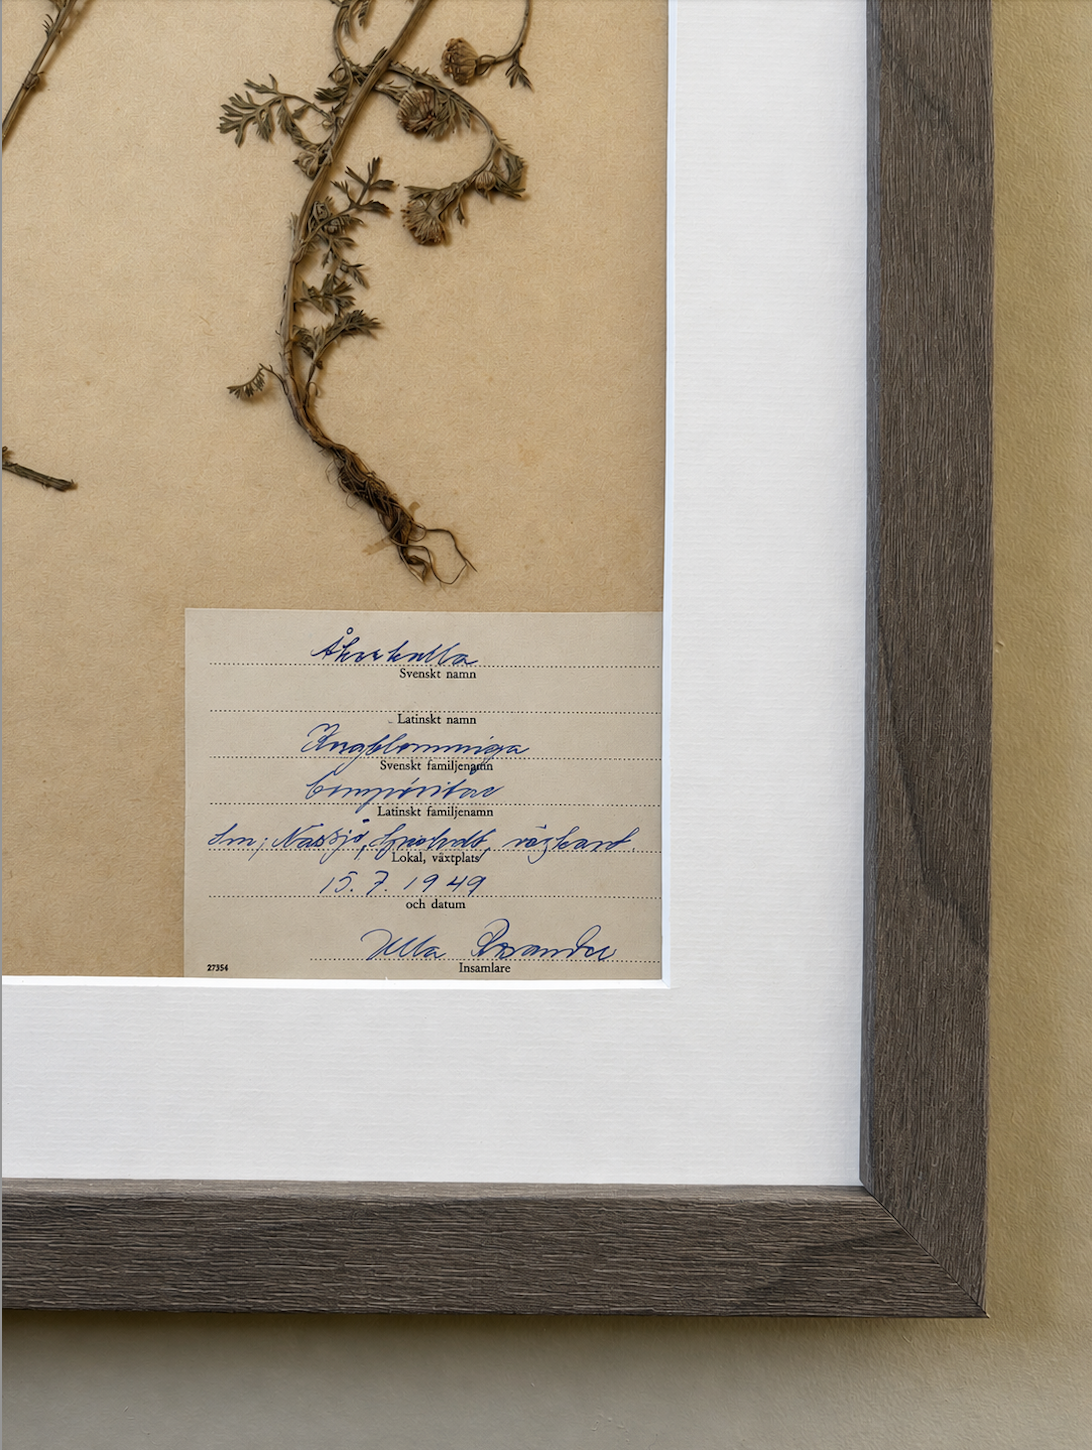 Åkerkulla
Svenskt namn
Latinskt namn
Korgblommiga
Svenskt familjenamn
Compositae
Latinskt familjenamn
Sm; Nässjö, vägkant.
Lokal, växtplats
15. 7. 1949
och datum
Ulla
27354 Insamlare